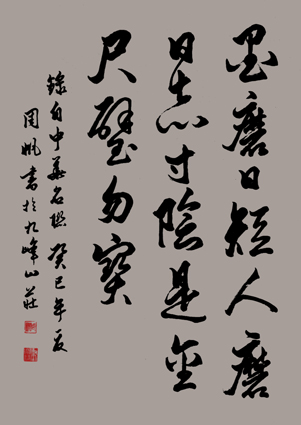 墨磨日短人磨
日老寸陰是金
尺璧勿寶
錄自中華名聯癸巳年夏
周書於九峰山莊